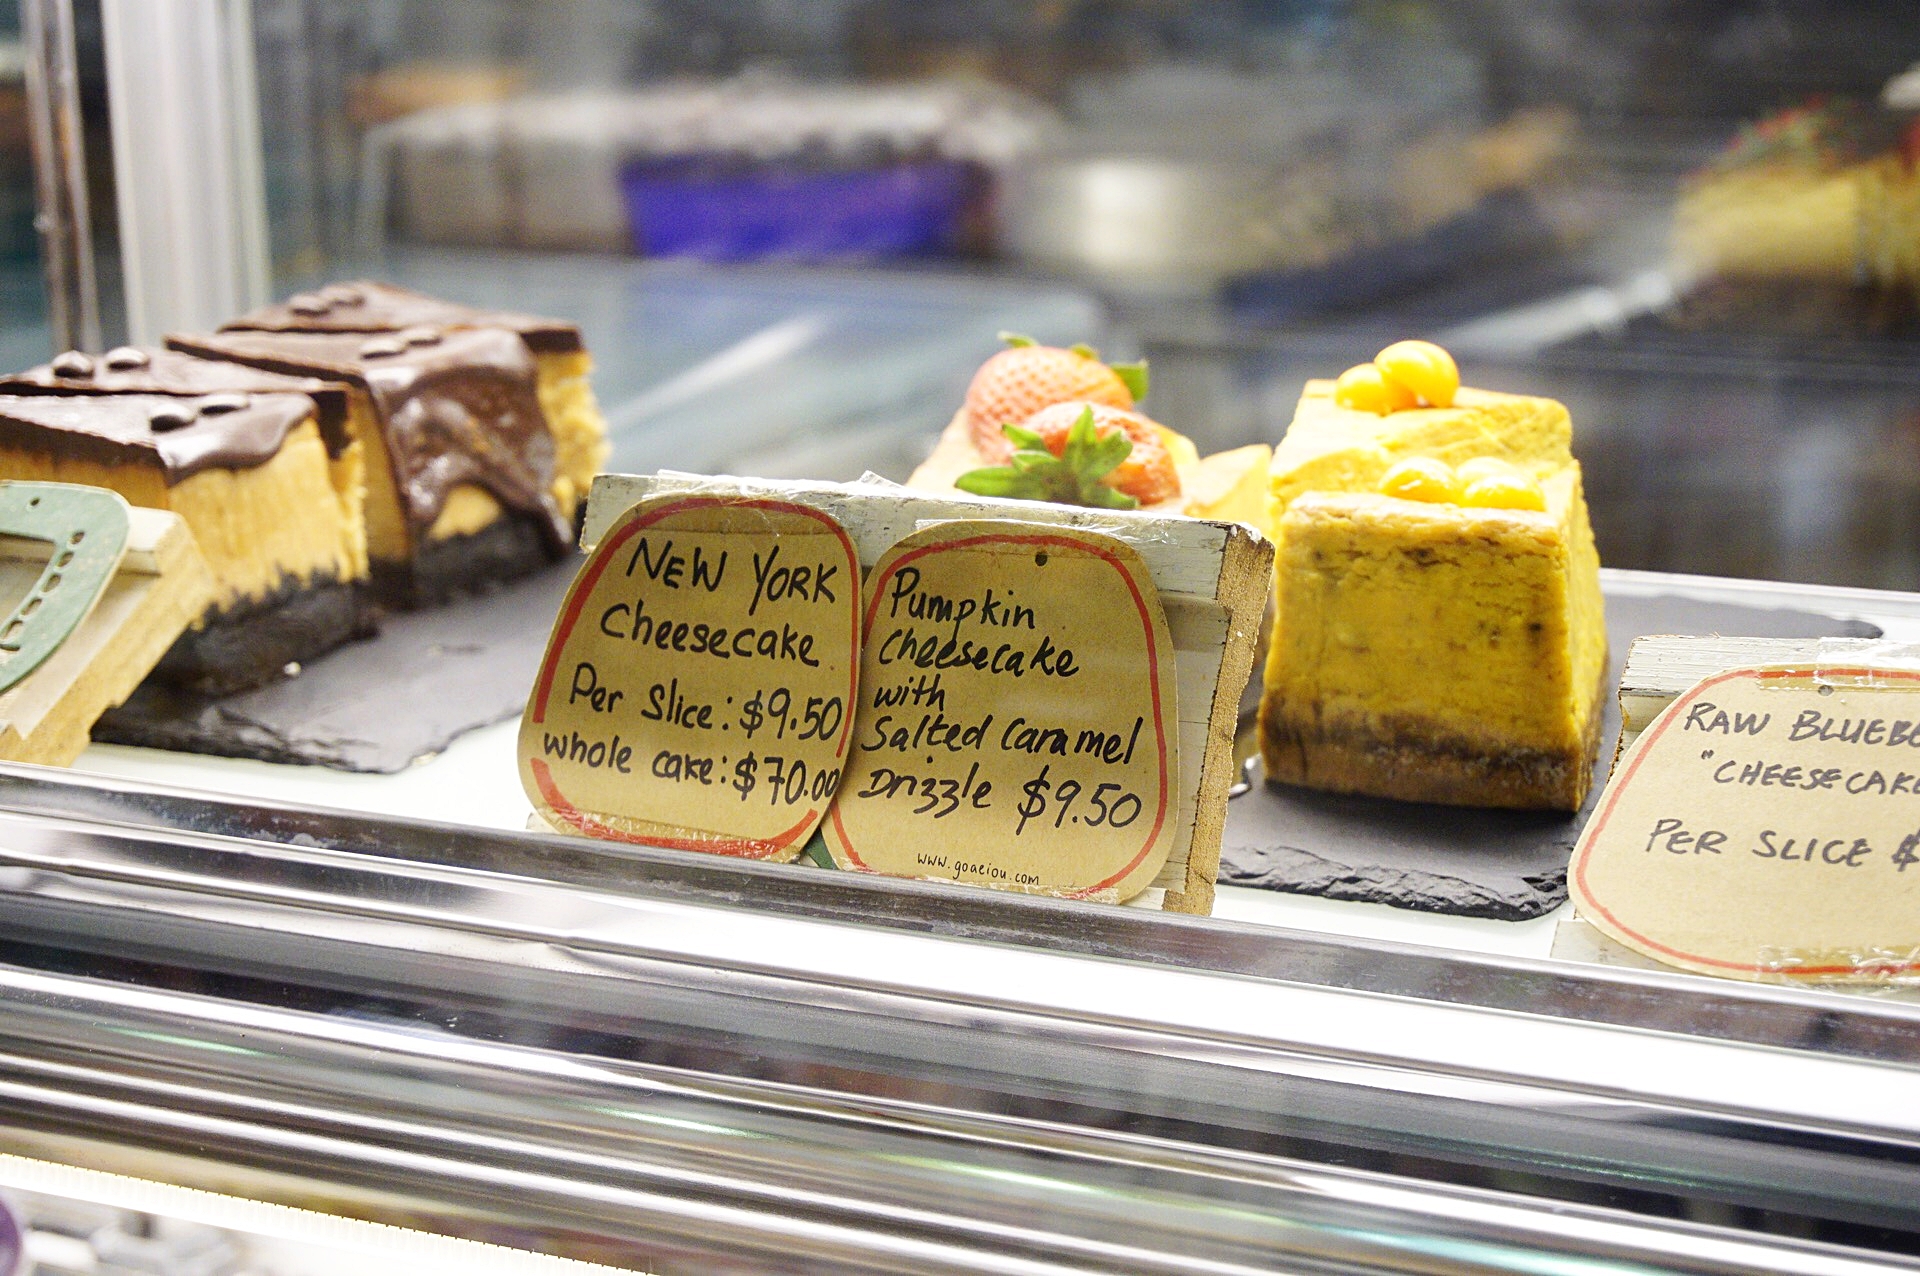 NEW YORK
Cheesecake
Per Slice: $9.50
whole cake: $70.00
Pumpkin
Cheesecake
with
Salted Caramel
Drizzle $9.50
www.goaeiou.com
RAW
"CHEESECAKE
PER SLICE $